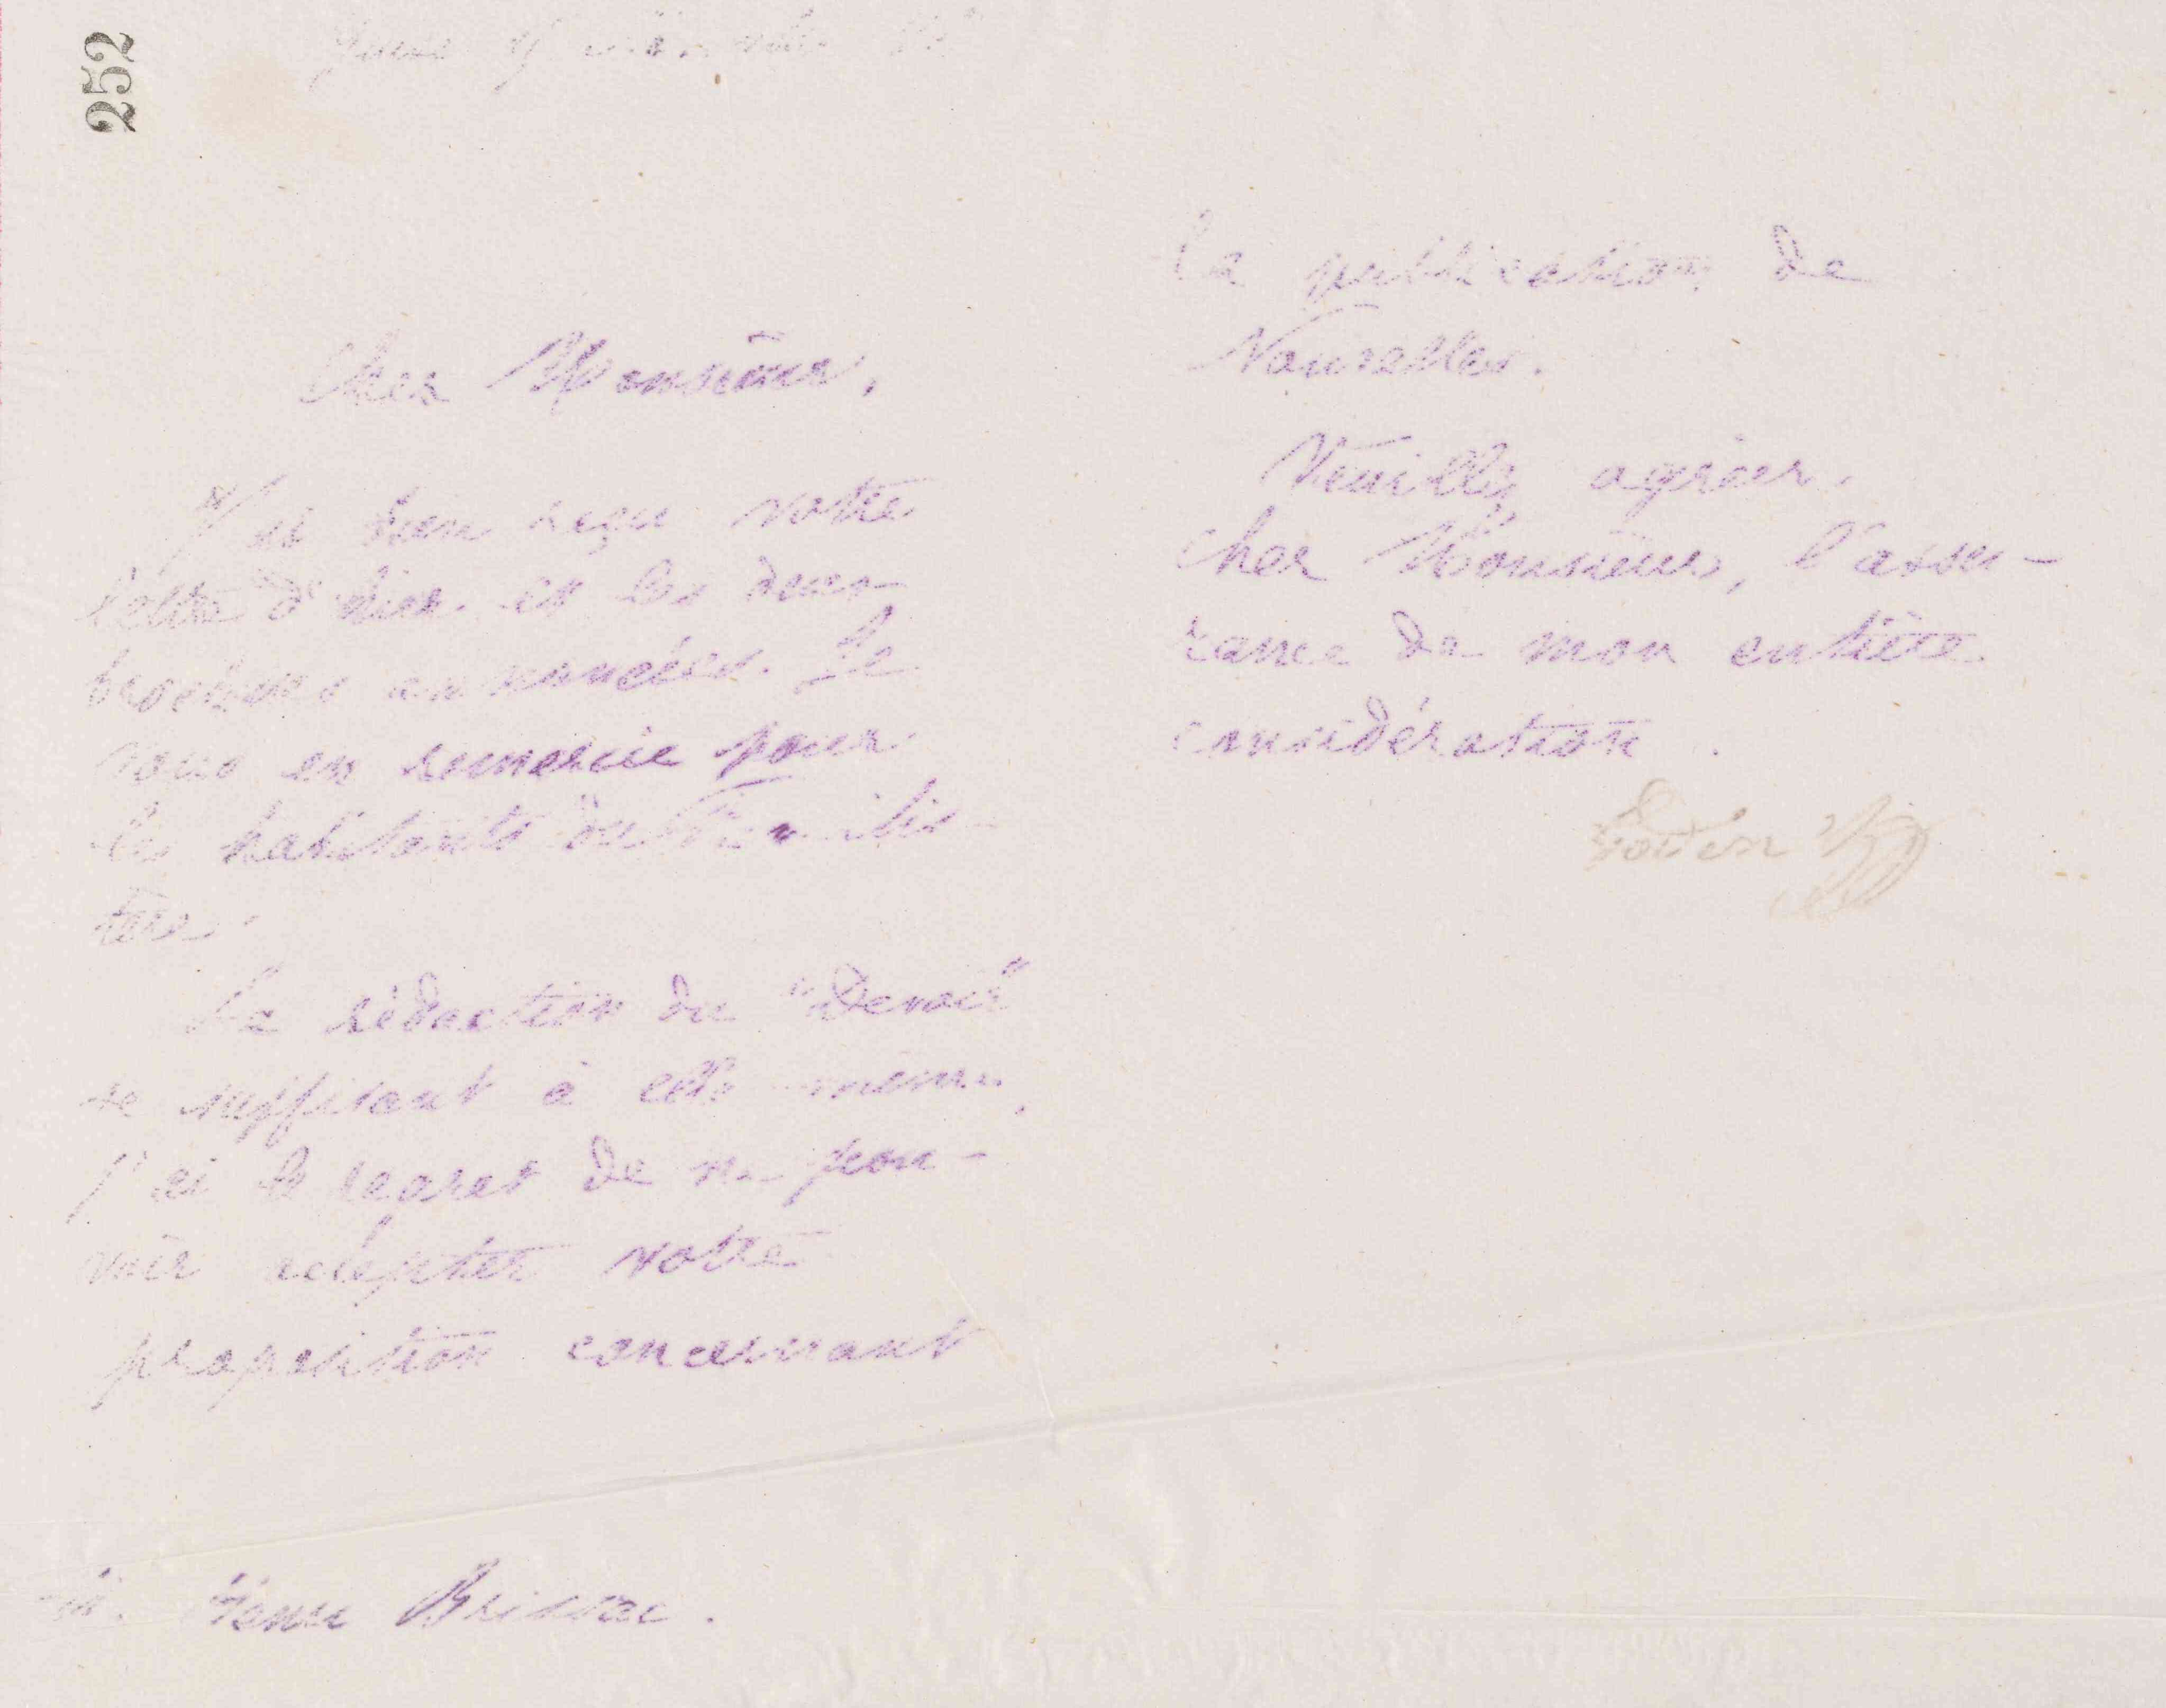 252
Guise
Cher Monsieur,
J'ai bien reçu votre
lettre d'hier et les deux
brochures annoncées. Je
vous en remercie pour
les habitants du Familis-
tère.
La rédaction du "Devoir"
se suffisant à elle même,
j'ai le regret de ne pou-
voir accepter votre
proposition concernant
M. Henri Brissac.
la publication de
Nouvelles.
Veuillez agréer,
cher Monsieur, l'assu-
rance de mon entière
considération.
Godin